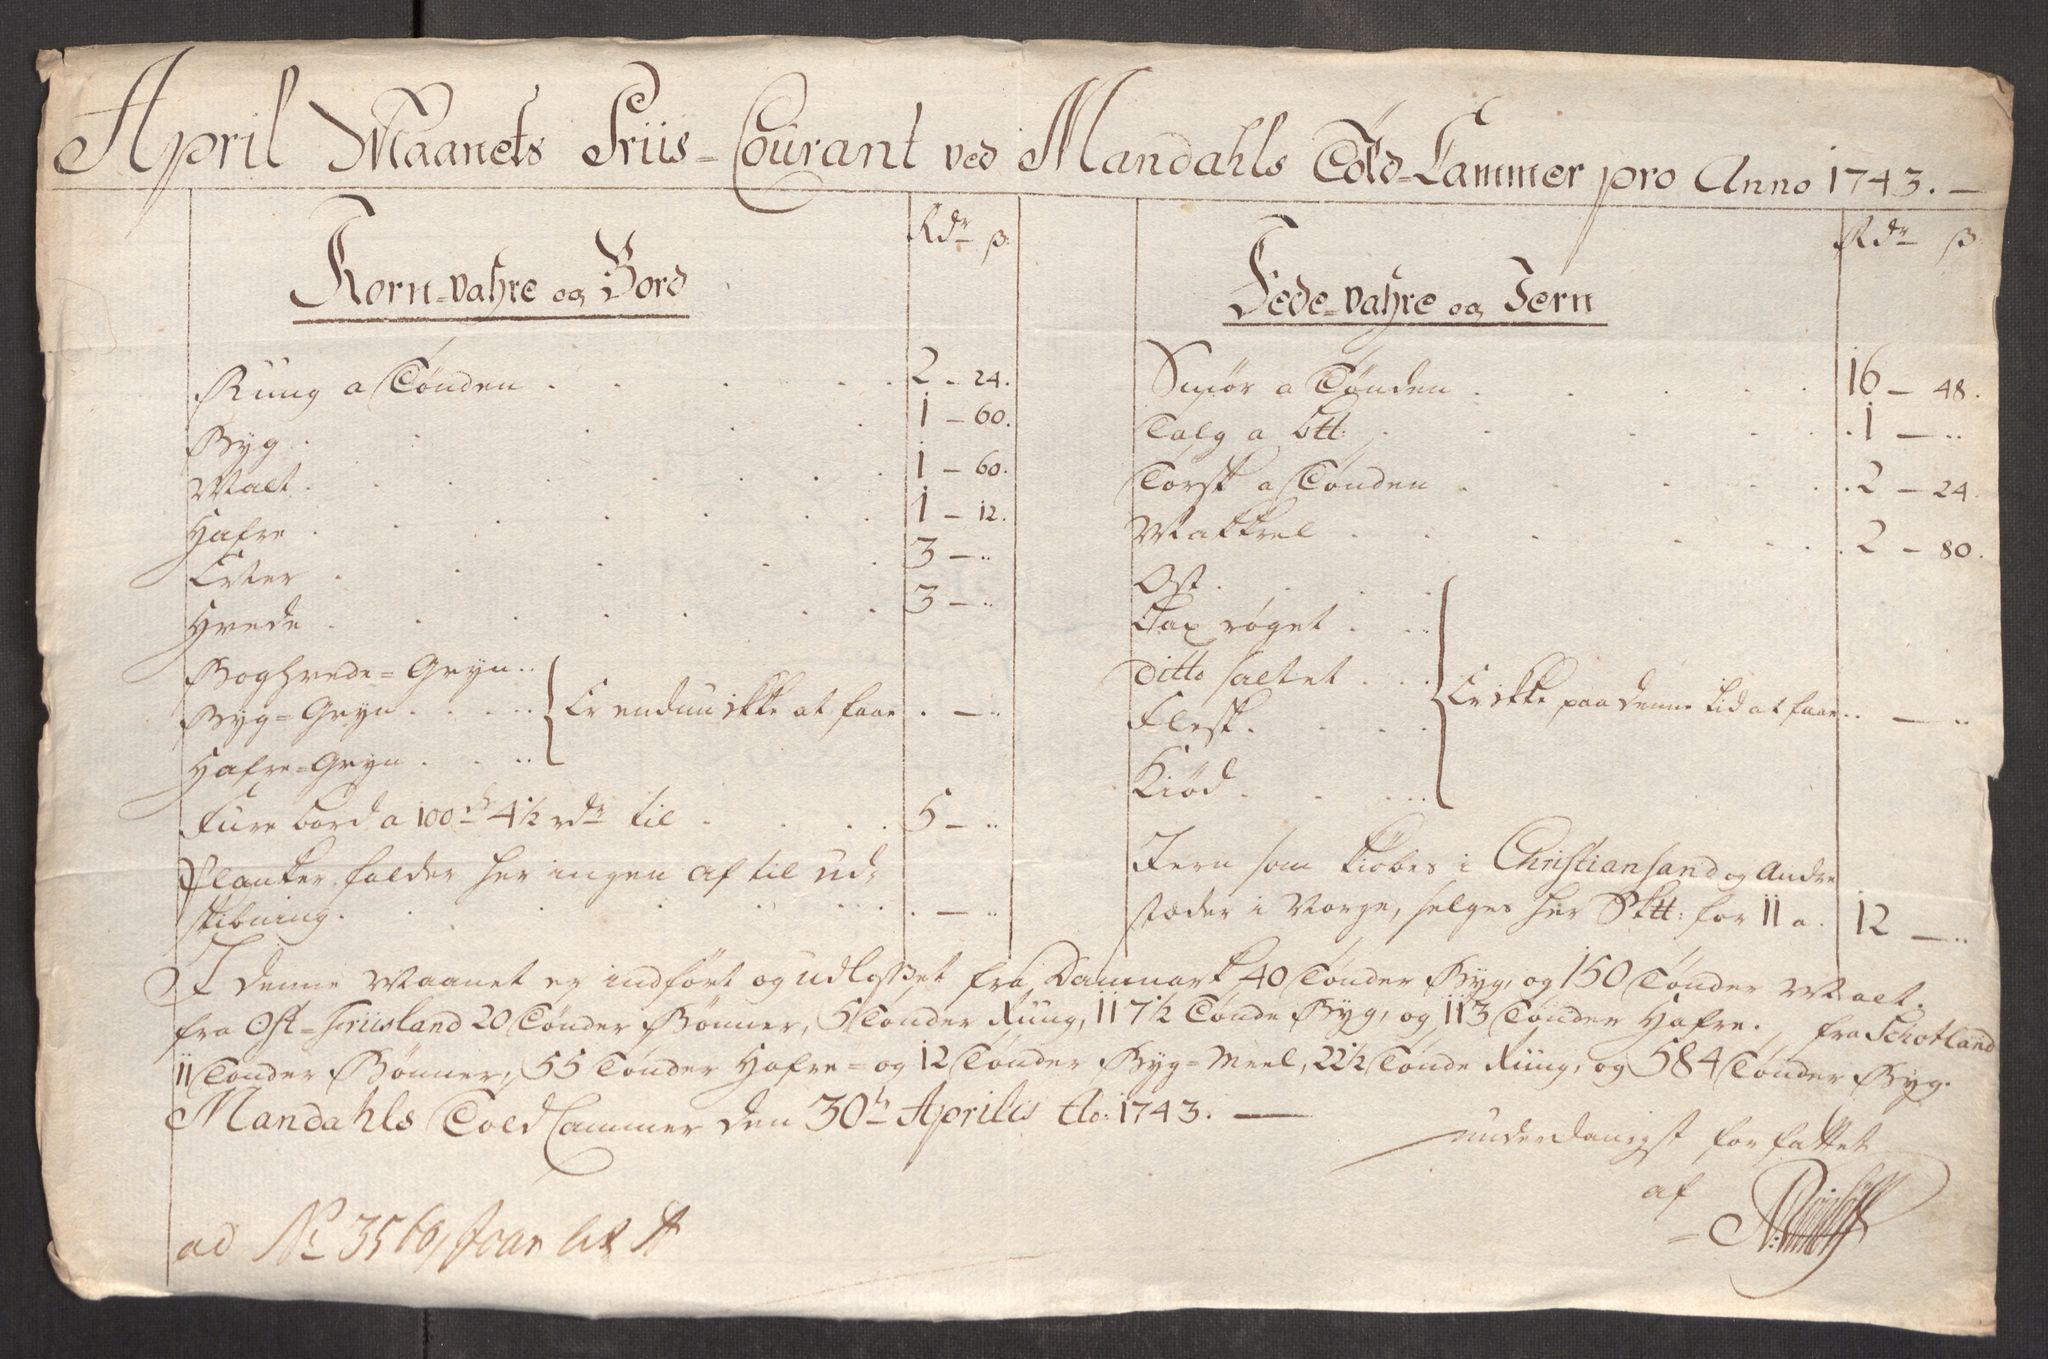 April Maanets Priis-Courant ved Mandahls Told-Cammer pro Anno 1743. —
Rdr ß:
Korn-vahre og Bord
Rung a Tønden . . . . . . 2 - 24.
Byg . . . . . . 1 - 60.
Malt . . . . . . 1 - 60.
Hafre . . . . . . 1 - 12.
Erter . . . . . . 3 - ..
Hvede . . . . . . 3 - ..
Boghvede=Gryn ..
Byg=Gryn . . . . Er endnu ikke at faae . — ..
Hafre=Gryn . . . ..
Fure bord a 100de 4½ rdr til . . . . 5 - ..
Planker falder her ingen af til ud-
skibning. . . . . . . — ..
Rdr ß:
Fede-vahre og Jern
Smør a Tønden . . . . . 16 - 48.
Talg a Ltt: . . . . . . 1 — ..
Torsk a Tønden . . . . . 2 - 24.
Makrel . . . . . 2 - 80.
Ost . . . .
Lax røget . . ..
Ditto saltet . . . Er ikke paa denne tid at faae .. — ..
Flesk . . . .
Kiød . . ..
Jern som kiøbes i Christiansand og Andre
stæder i Norge, selges her Sktt: for 11 a . 12 — ..
I denne Maanet er indført og udlosset fra Danmark 40 Tønder Byg, og 150 Tønder Malt.
fra Ost=Friisland 20 Tønder Bønner, 5 Tønder Rung, 117½ Tønde Byg, og 113 Tønder Hafre., fra Schotland
11 Tønder Bønner, 55 Tønder Hafre= og 12 Tønder Byg=Meel, 22½ Tønde Rung, og 584 Tønder Byg.
Mandahls Told Cammer den 30te Aprilis Ao: 1743. —
underdanigst forfattet
af
ad No 3560,